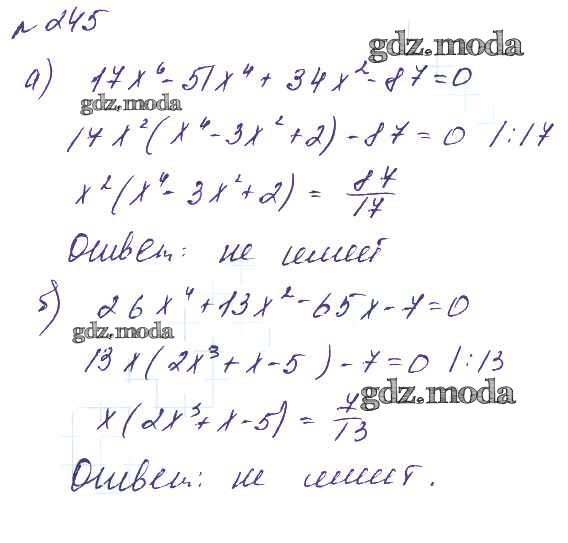 № 245
gdz.moda
а) 17x⁶ - 51x⁴ + 34x² - 87 = 0
gdz.moda
17x²(x⁴ - 3x² + 2) - 87 = 0 /:17
x²(x⁴ - 3x² + 2) = 87/17
Ответ: не имеет
б) 26x⁴ + 13x² - 65x - 7 = 0
gdz.moda
13x(2x³ + x - 5) - 7 = 0 /:13
gdz.moda
x(2x³ + x - 5) = 7/13
Ответ: не имеет.